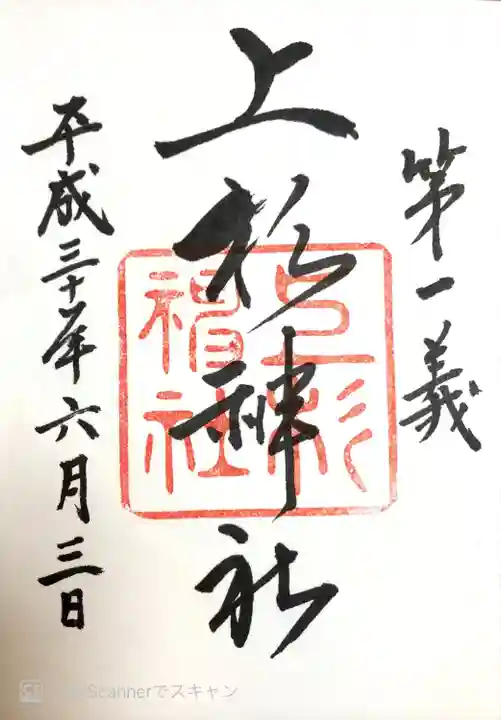 第一義
上杉神社
上杉
神社
平成三十年六月三日
Scannerでスキャン